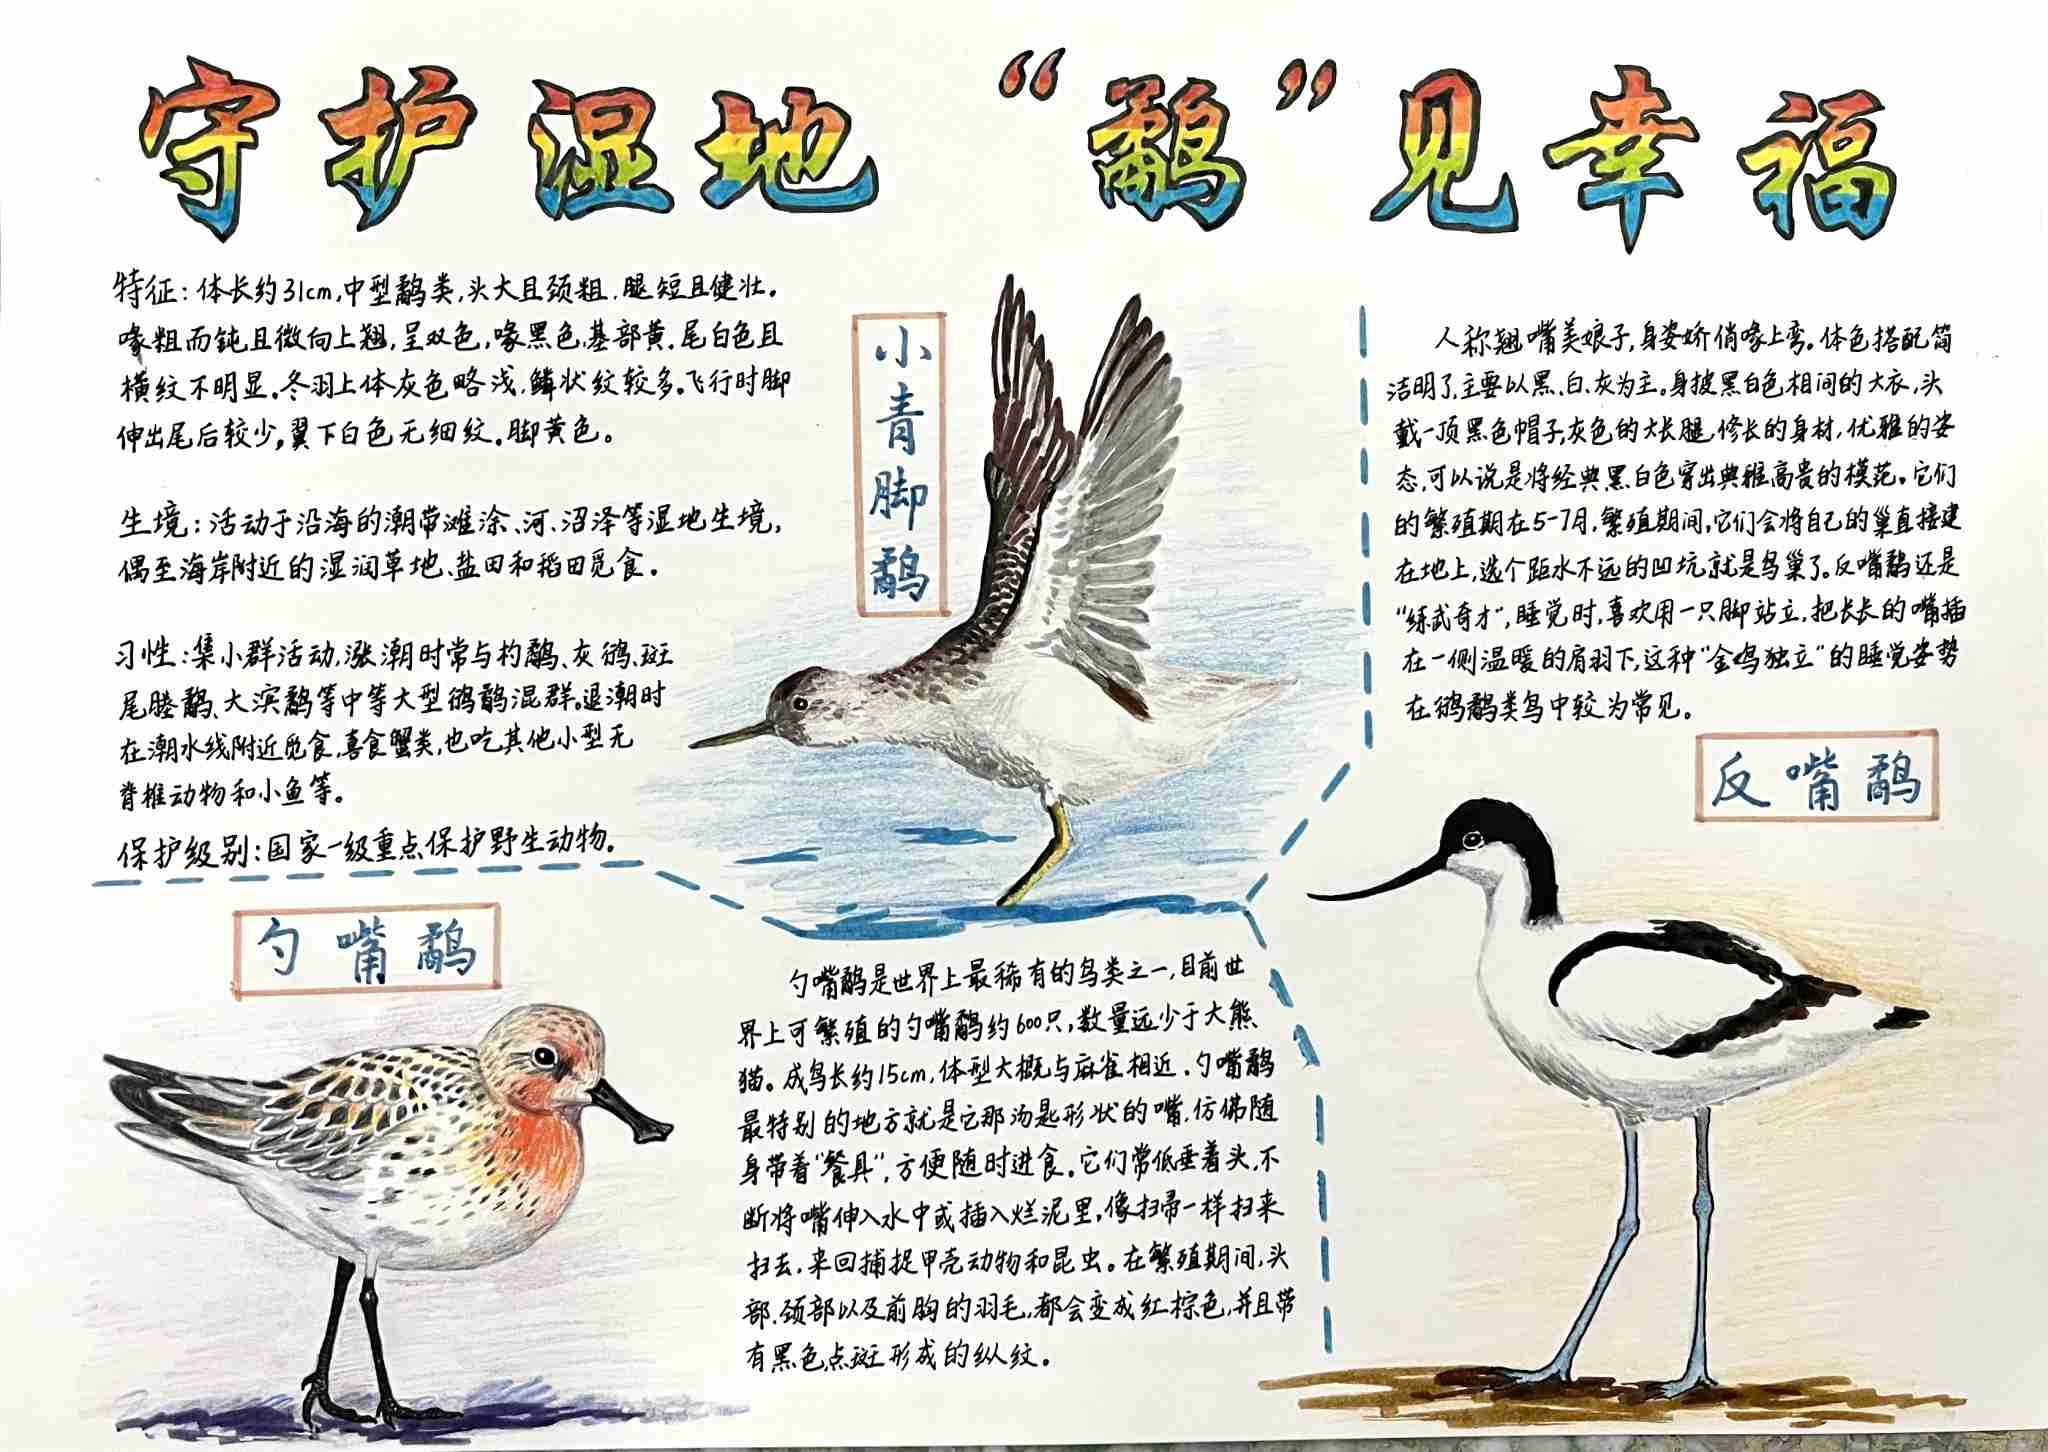 守护湿地 “鹬”见幸福
特征：体长约31cm，中型鹬类，头大且颈粗，腿短且健壮。
喙粗而钝且微向上翘，呈双色，喙黑色，基部黄。尾白色且
横纹不明显。冬羽上体灰色略浅，鳞状纹较多。飞行时脚
伸出尾后较少。翼下白色无细纹。脚黄色。
生境：活动于沿海的潮带滩涂、河、沼泽等湿地生境，
偶至海岸附近的湿润草地、盐田和稻田觅食。
习性：集小群活动，涨潮时常与杓鹬、灰鸻、斑
尾塍鹬、大滨鹬等中等大型鸻鹬混群。退潮时
在潮水线附近觅食，喜食蟹类，也吃其他小型无
脊椎动物和小鱼等。
保护级别：国家一级重点保护野生动物。
小青脚鹬
人称翘嘴美娘子，身姿娇俏喙上弯。体色搭配简
洁明了，主要以黑、白、灰为主。身披黑白色相间的大衣，头
戴一顶黑色帽子，灰色的大长腿，修长的身材，优雅的姿
态，可以说是将经典黑白色穿出典雅高贵的模范。它们
的繁殖期在5-7月，繁殖期间，它们会将自己的巢直接建
在地上，选个距水不远的凹坑就是鸟巢了。反嘴鹬还是
“练武奇才”，睡觉时，喜欢用一只脚站立，把长长的嘴插
在一侧温暖的肩羽下，这种“金鸡独立”的睡觉姿势
在鸻鹬类鸟中较为常见。
反嘴鹬
勺嘴鹬
勺嘴鹬是世界上最稀有的鸟类之一，目前世
界上可繁殖的勺嘴鹬约600只，数量远少于大熊
猫。成鸟长约15cm，体型大概与麻雀相近。勺嘴鹬
最特别的地方就是它那汤匙形状的嘴，仿佛随
身带着“餐具”，方便随时进食。它们常低垂着头，不
断将嘴伸入水中或插入烂泥里，像扫帚一样扫来
扫去，来回捕捉甲壳动物和昆虫。在繁殖期间，头
部、颈部以及前胸的羽毛，都会变成红棕色，并且带
有黑色点斑形成的纵纹。